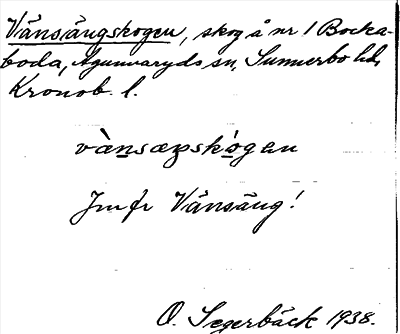 Vänsängskogen, skog å nr 1 Bocka-
boda, Agunnaryds sn, Sunnerbo hd,
Kronob. l.
vὰnsæŋskògen
Jmfr Vänsäng!
O. Segerbäck 1938.